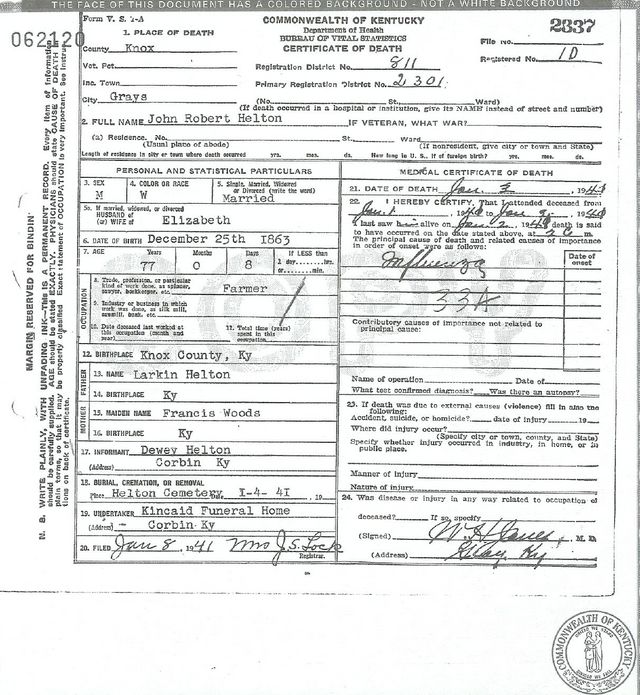 THE FACE OF THIS DOCUMENT HAS A COLORED BACKGROUND - NOT A WHITE BACKGROUND
Form V. S. 1-A
COMMONWEALTH OF KENTUCKY
Department of Health
BUREAU OF VITAL STATISTICS
CERTIFICATE OF DEATH
2337
062120
File No.
Registered No. 10
1. PLACE OF DEATH
County Knox
Vot. Pct.
Inc. Town
City Grays
Registration District No. 811
Primary Registration District No. 2301
(No. St. Ward)
(If death occurred in a hospital or institution, give its NAME instead of street and number)
2. FULL NAME John Robert Helton IF VETERAN, WHAT WAR?
(a) Residence. No. St. Ward
(Usual place of abode) (If nonresident, give city or town and State)
Length of residence in city or town where death occurred yrs. mos. ds. How long in U. S., if of foreign birth? yrs. mos. ds.
PERSONAL AND STATISTICAL PARTICULARS
3. SEX M
4. COLOR OR RACE W
5. Single, Married, Widowed or Divorced (write the word) Married
5a. If married, widowed, or divorced
HUSBAND of
(or) WIFE of Elizabeth
6. DATE OF BIRTH December 25th 1863
7. AGE Years 77 Months 0 Days 8
If LESS than
1 day hrs.
or min.
OCCUPATION
8. Trade, profession, or particular
kind of work done, as spinner,
sawyer, bookkeeper, etc. Farmer
9. Industry or business in which
work was done, as silk mill,
sawmill, bank, etc.
10. Date deceased last worked at
this occupation (month and
year)
11. Total time (years)
spent in this
occupation
12. BIRTHPLACE Knox County, Ky
FATHER
13. NAME Larkin Helton
14. BIRTHPLACE Ky
MOTHER
15. MAIDEN NAME Francis Woods
16. BIRTHPLACE Ky
17. INFORMANT Dewey Helton
(Address) Corbin Ky
18. BURIAL, CREMATION, OR REMOVAL
Place Helton Cemetery, I-4- 41, 19
19. UNDERTAKER Kincaid Funeral Home
(Address) - Corbin Ky
20. FILED Jan 8, 1941 Mrs J.S. Lock
Registrar.
MEDICAL CERTIFICATE OF DEATH
21. DATE OF DEATH Jan. , 1941
22. I HEREBY CERTIFY, That I attended deceased from
Jan. 1 to Jan
I last saw him alive on Jan. 2, death is said
to have occurred on the date stated above, at m.
The principal cause of death and related causes of importance
in order of onset were as follows:
Date of
onset
Influenza
33A
Contributory causes of importance not related to
principal cause:
Name of operation Date of
What test confirmed diagnosis? Was there an autopsy?
23. If death was due to external causes (violence) fill in also the
following:
Accident, suicide, or homicide? date of injury 19
Where did injury occur?
(Specify city or town, county, and State)
Specify whether injury occurred in industry, in home, or in
public place.
Manner of injury
Nature of injury
24. Was disease or injury in any way related to occupation of
deceased? If so, specify
(Signed) , M. D.
(Address) Ky
MARGIN RESERVED FOR BINDIN
N. B. WRITE PLAINLY, WITH UNFADING INK—THIS IS A PERMANENT RECORD. Every item of information
should be carefully supplied. AGE should be stated EXACTLY. PHYSICIANS should state CAUSE OF DEATH in
plain terms, so that it may be properly classified. Exact statement of OCCUPATION is very important. See instruc
tions on back of certificate.
COMMONWEALTH OF KENTUCKY